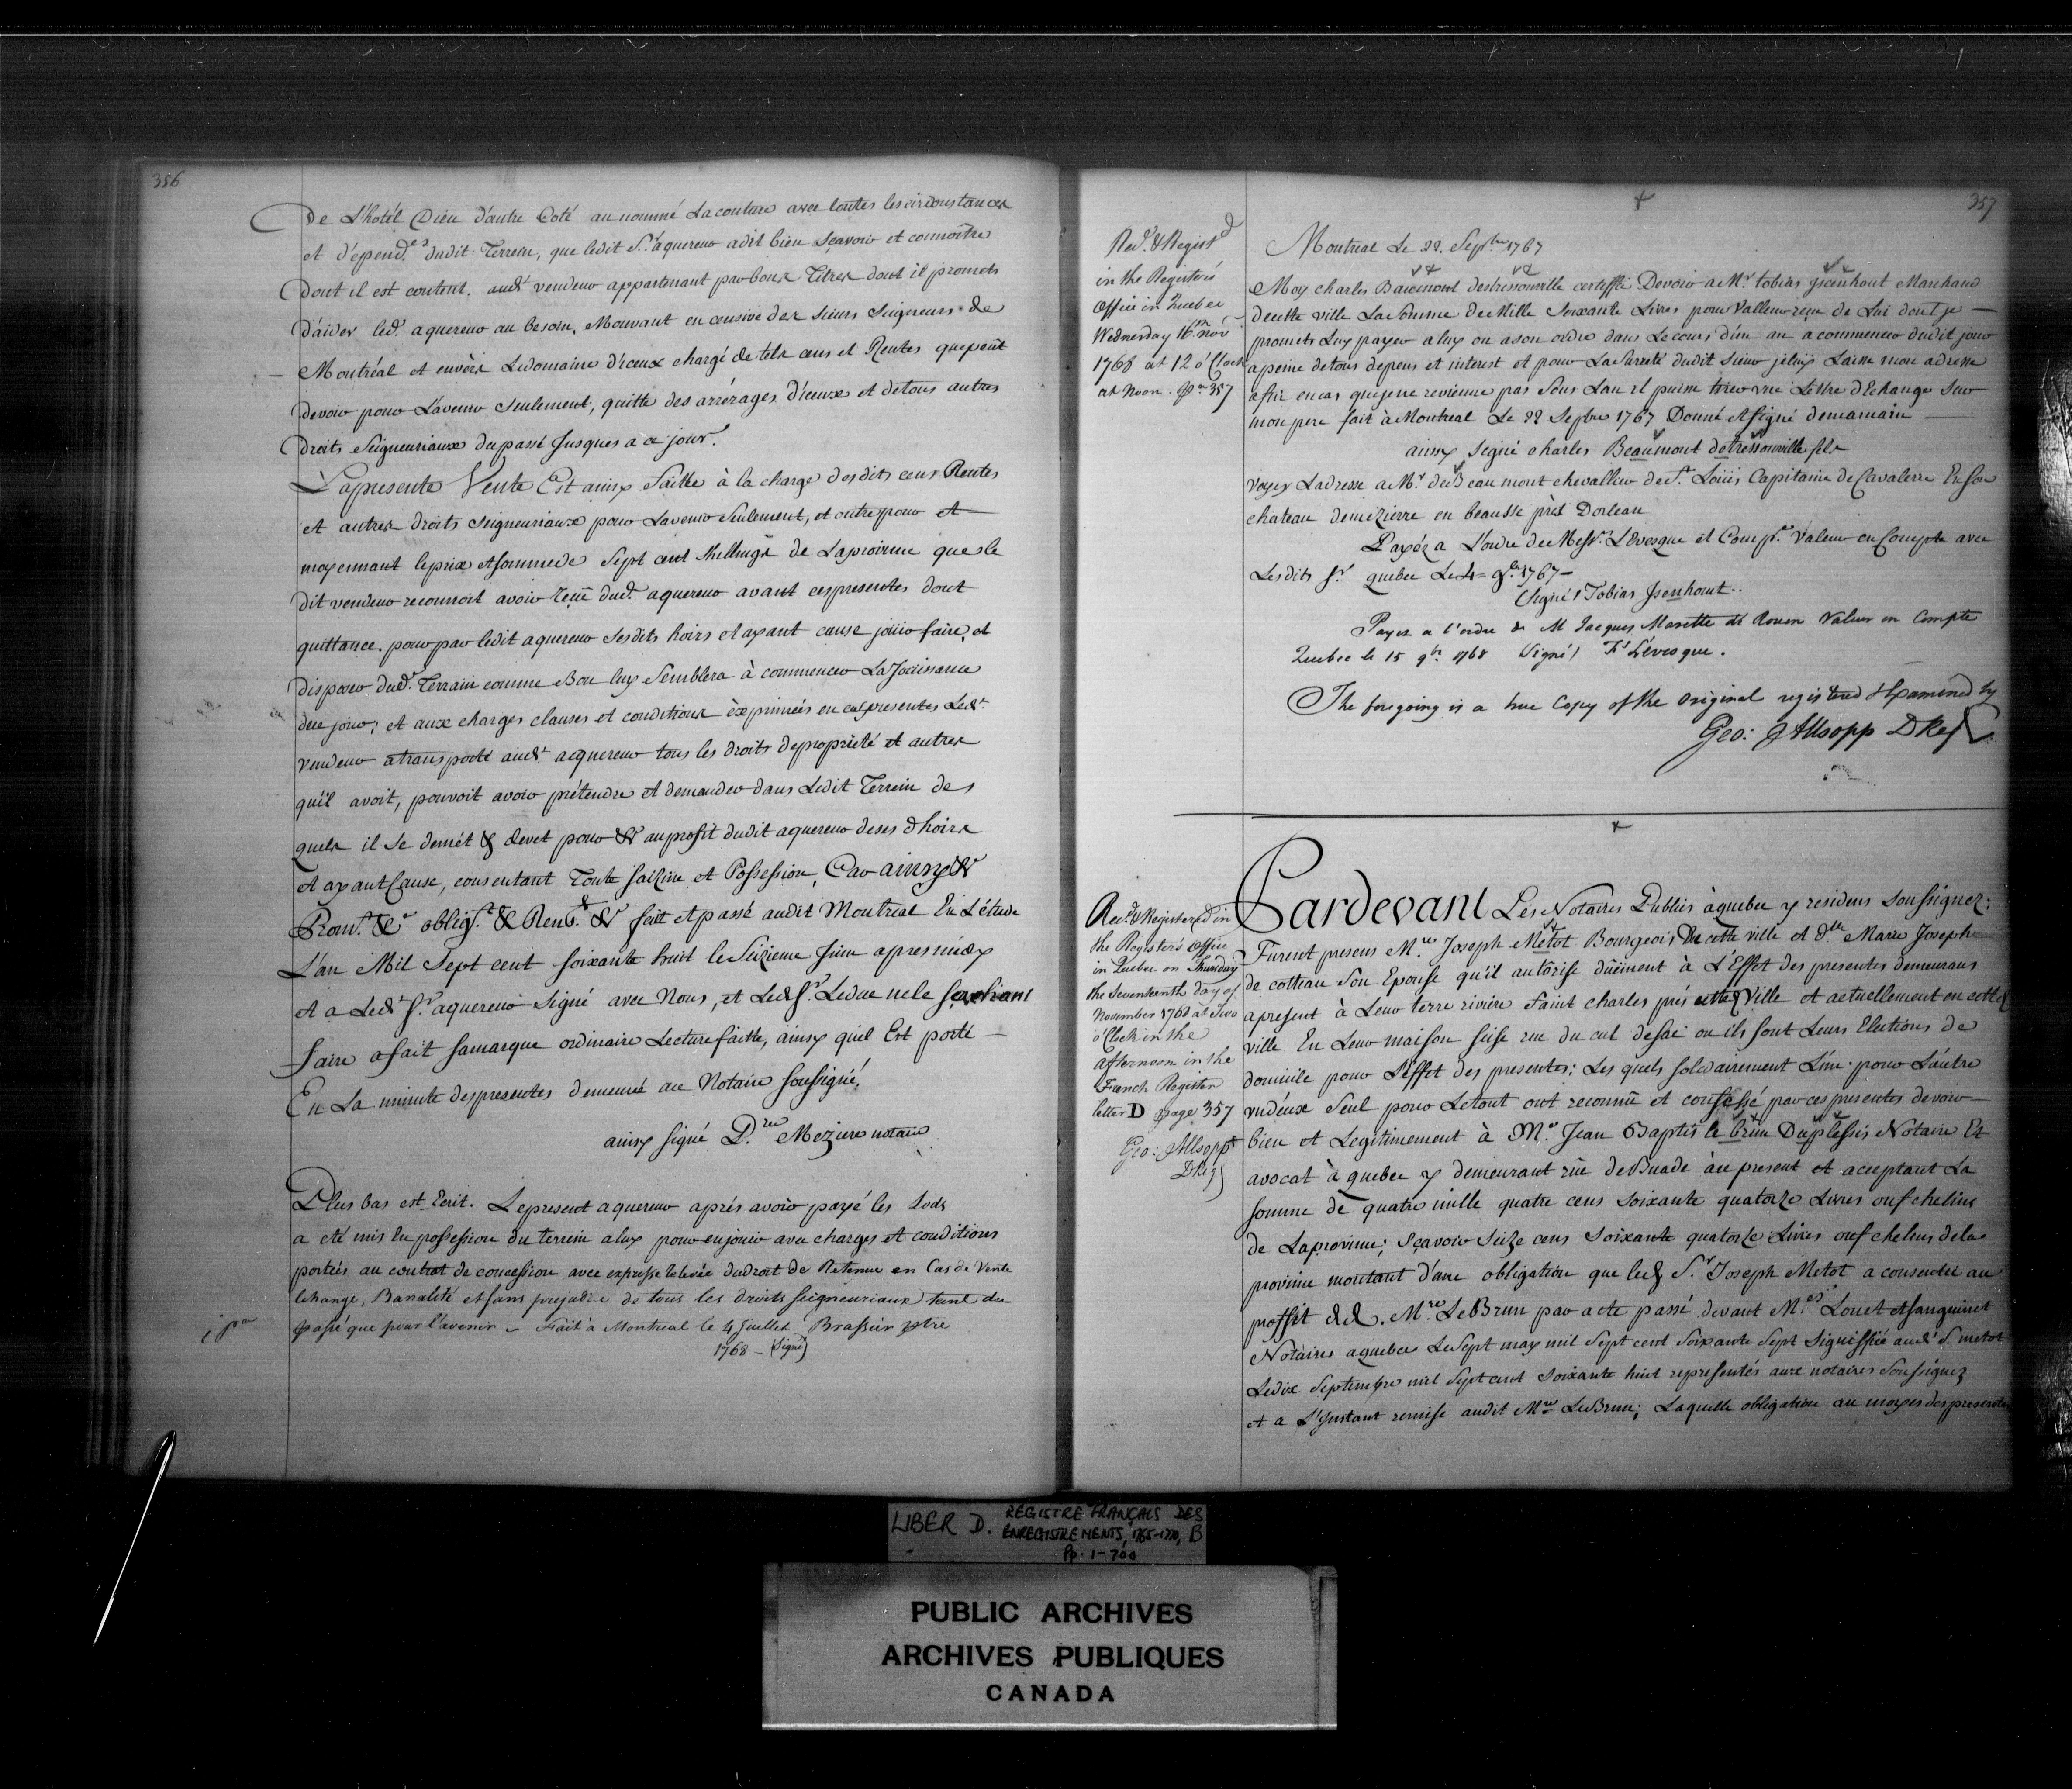 356
De L'hotél Dieu d'autre Coté au nommé Lacouture avec toutes les circonstances
et dépend.es dudit Terrein, que ledit S.r aquereur adit bien Scavoir et connoître
Dont il est content. audt vendeur appartenant par bons Titres dont il promets
D'aider led.t aquereur au besoin, Mouvant en censive des sieurs Seigneurs de
Montréal et envers Ledomaine d'iceux chargé de tels cens et Rentes quepeut
devoir pour L'avenir Seulement, quitte des arrérages d'iceux et detous autres
droits Seigneuriaux dupassé Jusques a ce jour.
Lapresente Vente Est ainsy Faitte à la charge desdits cens Rentes
et autres droits Seigneuriaux pour Lavenir Seulement, et outre pour et
moyennant leprix etsommede Sept cent Shellings de Laprovince que le
dit vendeur reconnoit avoir reçu dud.t aquereur avant cespresentes dont
quittance. pour par ledit aquereur sesdits hoirs et ayant cause joüir faire, et
disposer dud.t Terrain comme Bon luy Semblera à commencer La Joüissance
dece jour; et aux charges clauses et conditions exprimées en cespresentes Ledt
vendeur atransporté audt acquereur tous les droits depropriété et autres
qu'il avoit, pouvoit avoir prétendre et demander dans Ledit Terrein des
quels il se demét & devet pour & auprofit dudit aquereur deses dhoirs
et ayant Cause, consentant Toute saizine et Possession, Car ainsy &
Prom.t &a oblig.t & Renç.t & fait et passé audit Montreal En L'étude
L'an Mil Sept cent soixante huit le Seizieme Juin apres midy
et a Ledt S.r aquereur Signé avec Nous, et Ledt S.r Leduc nele sachant
faire afait samarque ordinaire Lecture faitte, ainsy quil Est porté
En La minute despresentes demeuré au Notaire Soussigné.
ainsy signé P.re Meziere notaire
Plus bas est Ecrit. Lepresent aquereur aprés avoir payé les Lods
a eté mis En possession du terrein aluy pour enjouir avec charges et conditions
portées au contrat de concession avec expresse dudroit de Retenue en Cas de Vente
Echange, Banalité et sans prejudice de tous les droits seigneuriaux tant du
passé que pour l'avenir Fait à Montreal le 4 Juillet Brassier ptre
1768 (Signé)
357
Rec.d & Regist.d
in the Registers
Office in Quebec
Wednesday 16th Nov.r
1768 at 12 o'Clock
at Noon. pa 357
Montreal Le 22. Sep.bre 1767
Moy charles Baumont destressonville certiffie Devoir a Mr tobias ysenhout Marchand
decette ville La Somme de Mille Soixante Livres pour Valleur reçu de Lui dont je
promets Luy payer a luy ou a son ordre dans Le cours d'un an a commencer dudit jour
apeine detous depens et interest et pour La Sureté dudit Sieur jeluy Laisse mon adresse
afin encas quejene revienne pas Sous Lan il puisse tirer une Lettre d'Echange Sur
mon pere fait à Montreal Le 22 Septbre 1767 Donné et signé demamain
ainsy signé charles Beaumont detressonville fils
voyez Ladresse a Mr deBeaumont chevallier de S.t Loüis Capitaine de Cavalerie En son
chateau demezierre en beausse près Dorlean
Payéz a L'ordre de Messrs Lévesque et Comp.e Valeur en Compte avec
Lesdits Srs quebec Le 4 9bre 1767
(Signé) Tobias Jsenhout..
Payez a l'ordre de M Jacques Marette de Rouen Valeur en Compte
Quebec le 15 9bre 1768 (Signé) Fs Lévesque.
The foregoing is a true Copy of the Original registered & Examined by
Geo: Allsopp DReg
Rec.d & Registered in
the Registers Office
in Quebec on Thursday
the Seventeenth day of
November 1768 at Two
o'Clock in the
afternoon in the
French Register
letter D page 357
Geo: Allsopp
DReg
Pardevant Les Notaires Publics àquebec y residens Soussignez:
Furent presens Mre Joseph Metot Bourgeois De cette ville et Dlle Marie Joseph
de cotteau Son Epouse qu'il autorise düement à L'Effet des presentes demeurans
apresent à Leur terre riviere Saint charles prés cette Ville et actuellement en cette
ville En Leur maison seise rue du cul desac ou ils font Leurs Elections de
domicile pour L'effet des presentes; Les quels solidairement L'un pour L'autre
undeux Seul pour Letout ont reconnu et confessé par ces presentes devoir
bien et Legitimement à Me Jean Baptis le brun Duplessis Notaire Et
avocat à quebec y demeurant rüe deBuade àce present et acceptant La
somme de quatre mille quatre cens soixante quatorze Livres onse chelins
de Laprovince; Sçavoir Seize cens Soixante quatorze Livres onse chelins dela
province montant d'une obligation que led S.r Joseph Metot a consentie au
proffit dud. Mre LeBrun par acte passé devant Mes Louet et Sanguinet
Notaires aquebec Le Sept may mil Sept cent Soixante Sept Signiffiée audt S. metot
Ledix Septembre mil Sept cent Soixante huit representés aux notaires Soussignez
et a L'Instant remise audit Mre LeBrun; Laquelle obligation au moyen des presentes
LIBER D. REGISTRE FRANÇAIS DES
ENREGISTREMENTS, 1765-1770, B
Pp. 1-700
PUBLIC ARCHIVES
ARCHIVES PUBLIQUES
CANADA